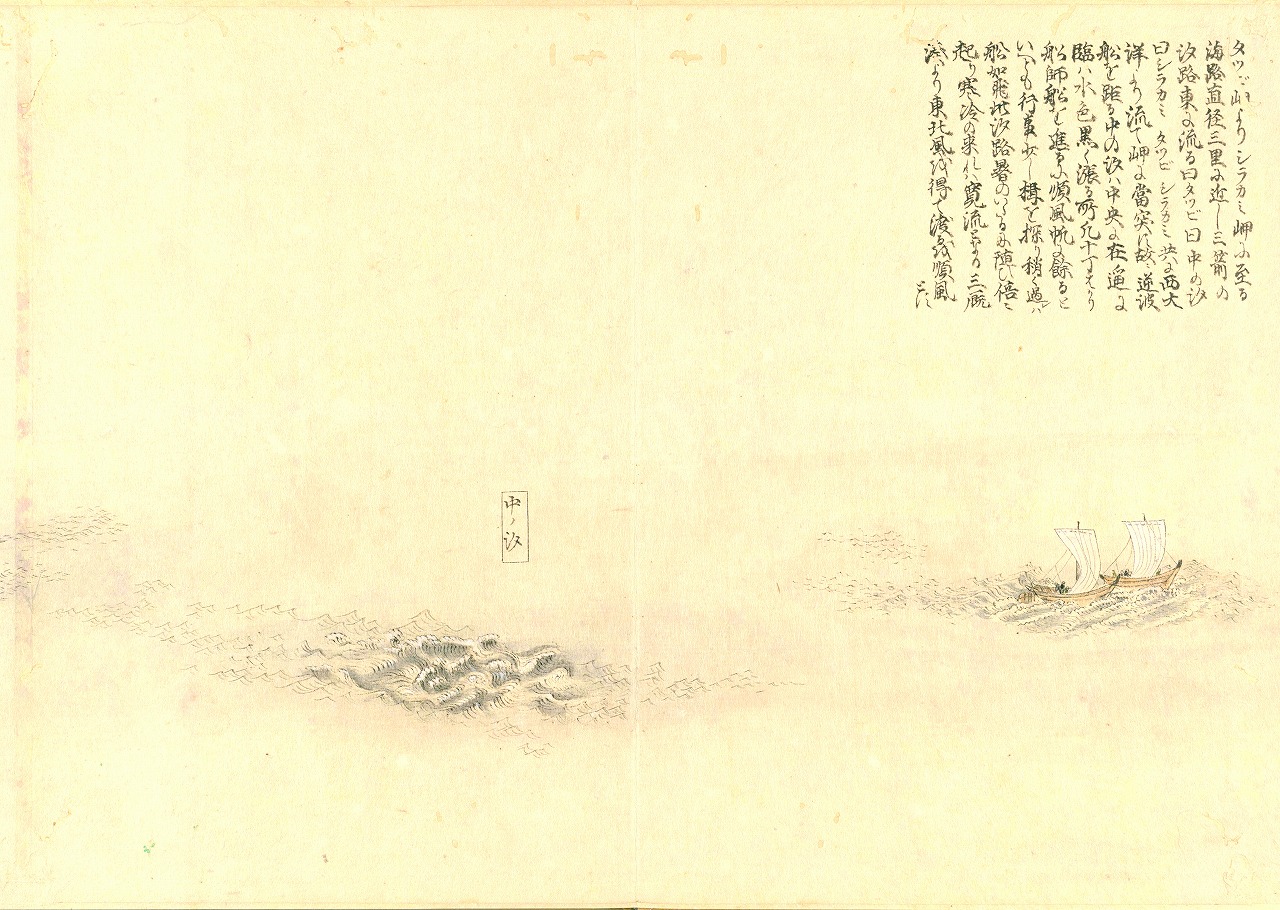 タツピ岬よりシラカミ岬に至る
海路直径三里に近し三箭の
汐路東に流る曰タツピ曰中の汐
曰シラカミ タツピ シラカミ 共に西大
洋より流て岬に當突に故に逆波
船を距る中の汐ハ中央に在
臨ハ水色黒く漲る所凡十丁はかり
船師船を進るに順風帆に餘ると
いへとも行事少し楫を探り稍く過れハ
船如飛此汐路暑のいたるに随ひ倍々
起り寒冷の来れハ寛流となる三厩
渡より東北風を得て渡るを順風
とす
中ノ汐